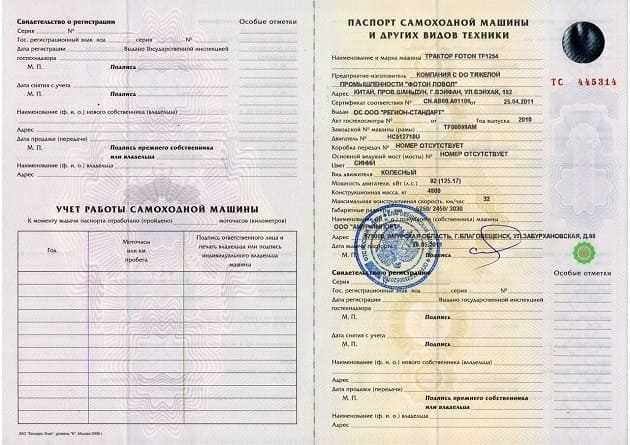 Свидетельство о регистрации
Особые отметки
Серия №
Гос. регистрационный знак код серия №
Дата регистрации Выдано Государственной инспекцией
гостехнадзора
М. П. Подпись
Дата снятия с учета
М. П. Подпись
Наименование (ф. и. о.) нового собственника (владельца)
Адрес
Дата продажи (передачи)
М. П. Подпись прежнего собственника
или владельца
УЧЕТ РАБОТЫ САМОХОДНОЙ МАШИНЫ
К моменту выдачи паспорта отработано (пройдено) моточасов (километров)
Год
Моточасы
или км
пробега
Подпись ответственного лица и
печать владельца или подпись
индивидуального владельца
машины
ПАСПОРТ САМОХОДНОЙ МАШИНЫ
И ДРУГИХ ВИДОВ ТЕХНИКИ
ТС 445314
Наименование и марка машины ТРАКТОР FOTON TF1254
Предприятие-изготовитель КОМПАНИЯ С ОО ТЯЖЕЛОЙ
ПРОМЫШЛЕННОСТИ "ФОТОН ЛОВОЛ"
Адрес КИТАЙ, ПРОВ.ШАНЬДУН, Г.ВЭЙФАН, УЛ.БЭЙХАЙ, 192
Сертификат соответствия № от 25.04.2011
ОС ООО "РЕГИОН-СТАНДАРТ"
Акт гостехосмотра № от Год выпуска 2010
Заводской № машины (рамы)
Двигатель №
Коробка передач № НОМЕР ОТСУТСТВУЕТ
Основной ведущий мост (мосты) № НОМЕР ОТСУТСТВУЕТ
Цвет СИНИЙ
Вид движителя КОЛЕСНЫЙ
Мощность двигателя, кВт (л.с.) 92 (125.17)
Конструкционная масса, кг 4800
Максимальная конструктивная скорость, км/час 32
Габаритные 5250/ 2450/ 3030
собственника (владельца) машины
ООО
Адрес ОБЛАСТЬ, Г.БЛАГОВЕЩЕНСК, УЛ.ЗАБУРХАНОВСКАЯ, Д.98
Дата выдачи
М. П. Подпись
Свидетельство о регистрации
Особые отметки
Серия
Гос. регистрационный знак код серия №
Дата регистрации Выдано Государственной инспекцией
гостехнадзора
М. П. Подпись
Дата снятия с учета
М. П. Подпись
Наименование (ф. и. о.) нового собственника (владельца)
Адрес
Дата продажи (передачи)
М. П. Подпись прежнего собственника
или владельца